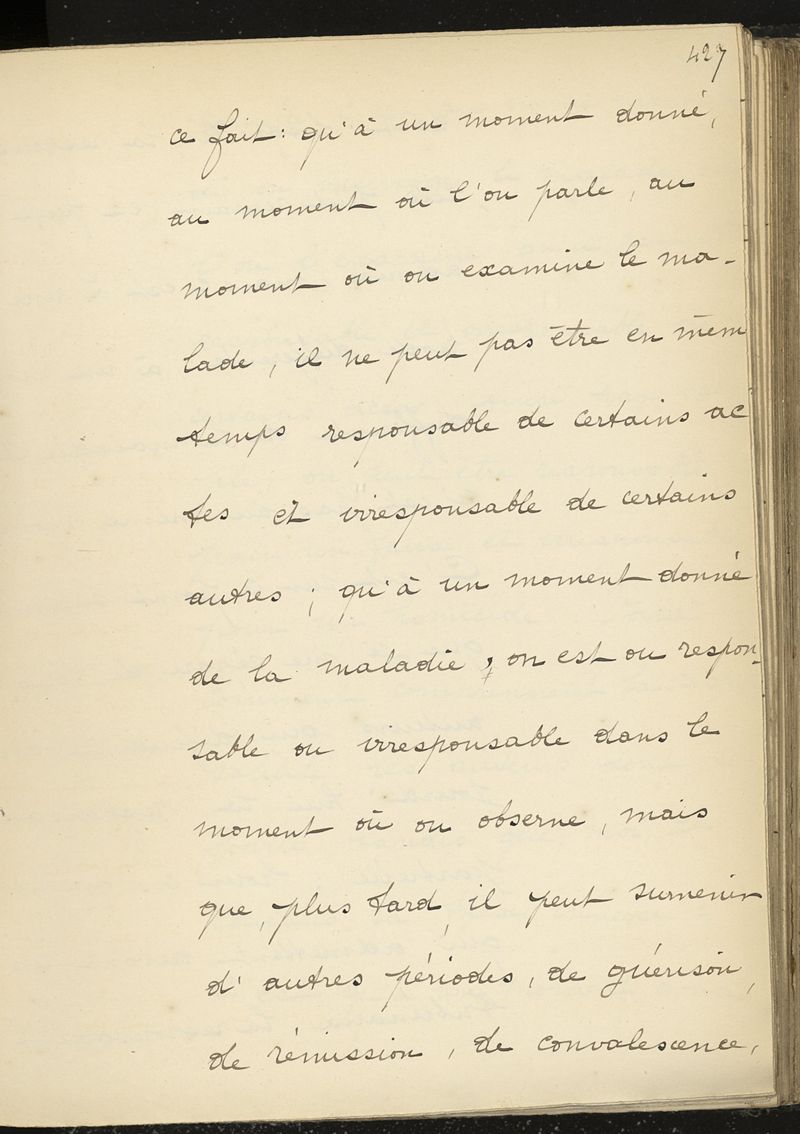 427
ce fait : qu'à un moment donné,
au moment où l'on parle, au
moment où on examine le ma-
lade, il ne peut pas être en mêm
temps responsable de certains ac
tes et irresponsable de certains
autres ; qu'à un moment donné
de la maladie, on est ou respon-
sable ou irresponsable dans le
moment où on observe, mais
que, plus tard, il peut survenir
d'autres périodes, de guérison,
de rémission, de convalescence,